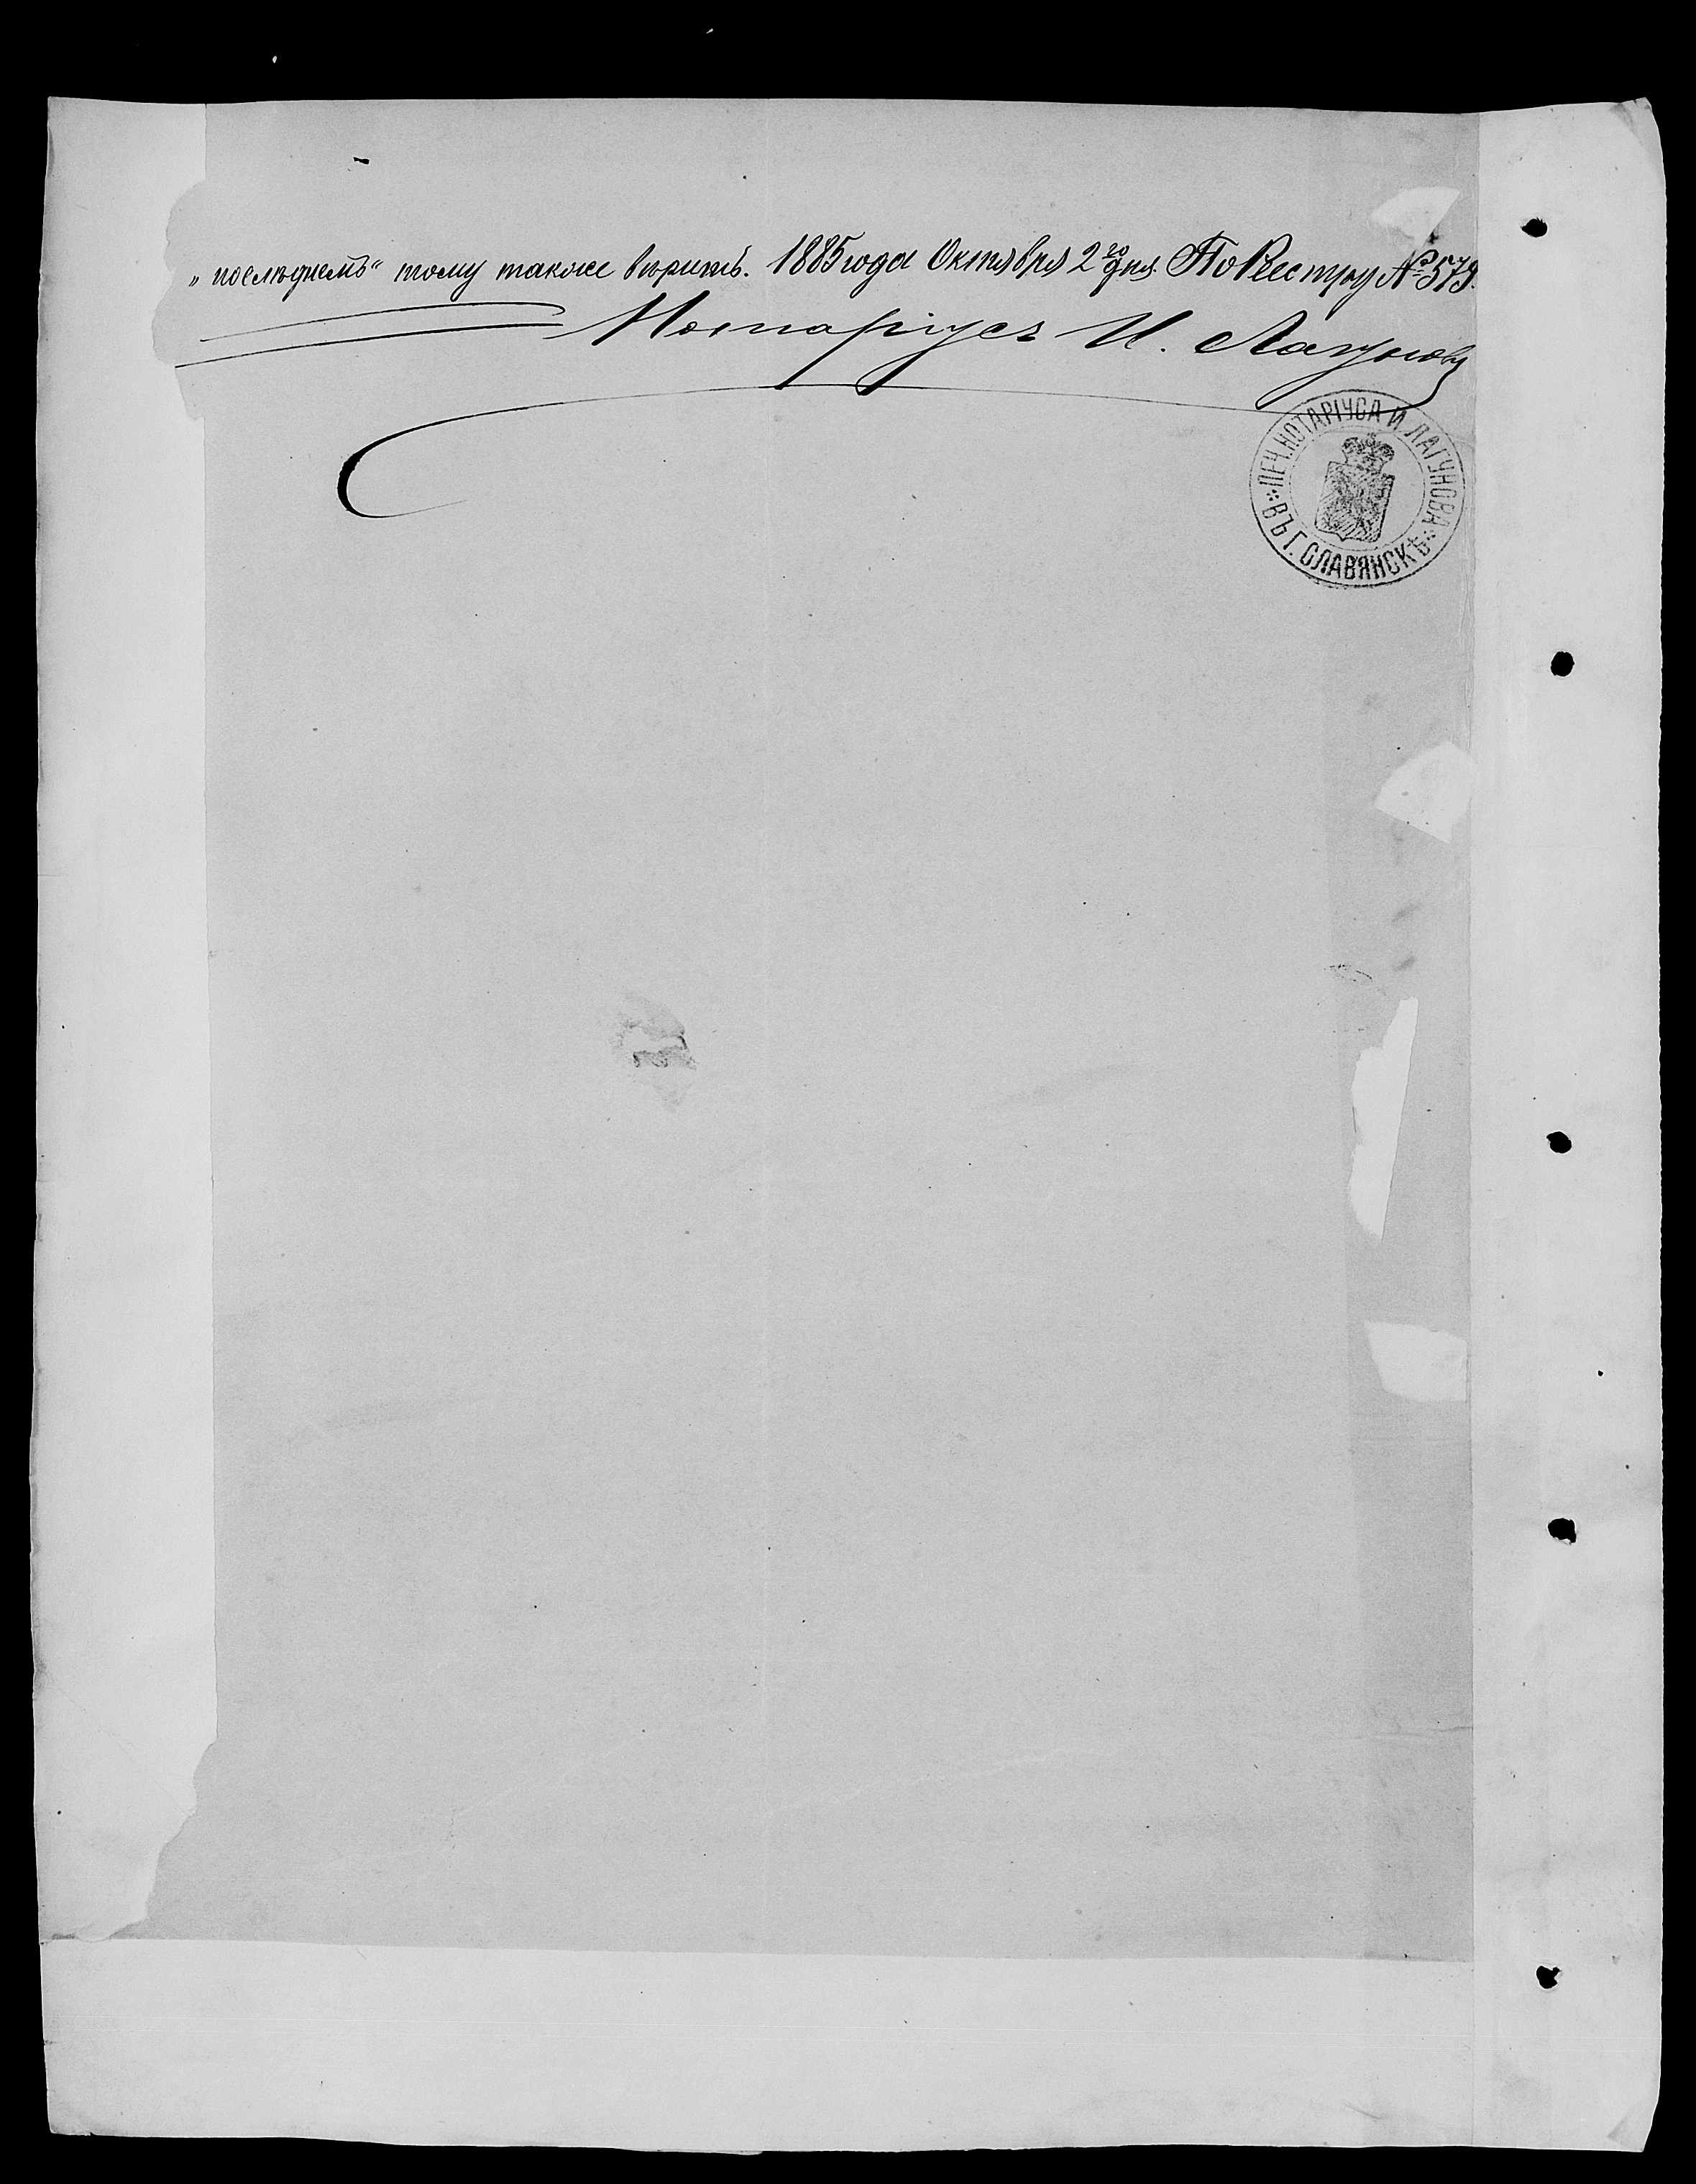 „послѣднемъ“ тому также вѣрить. 1885 года Октября 2го дня. По Реестру № 579.
Нотаріусъ И. Лагуновъ
ПЕЧ. НОТАРІУСА И ЛАГУНОВА
ВЪ Г. СЛАВЯНСКѢ